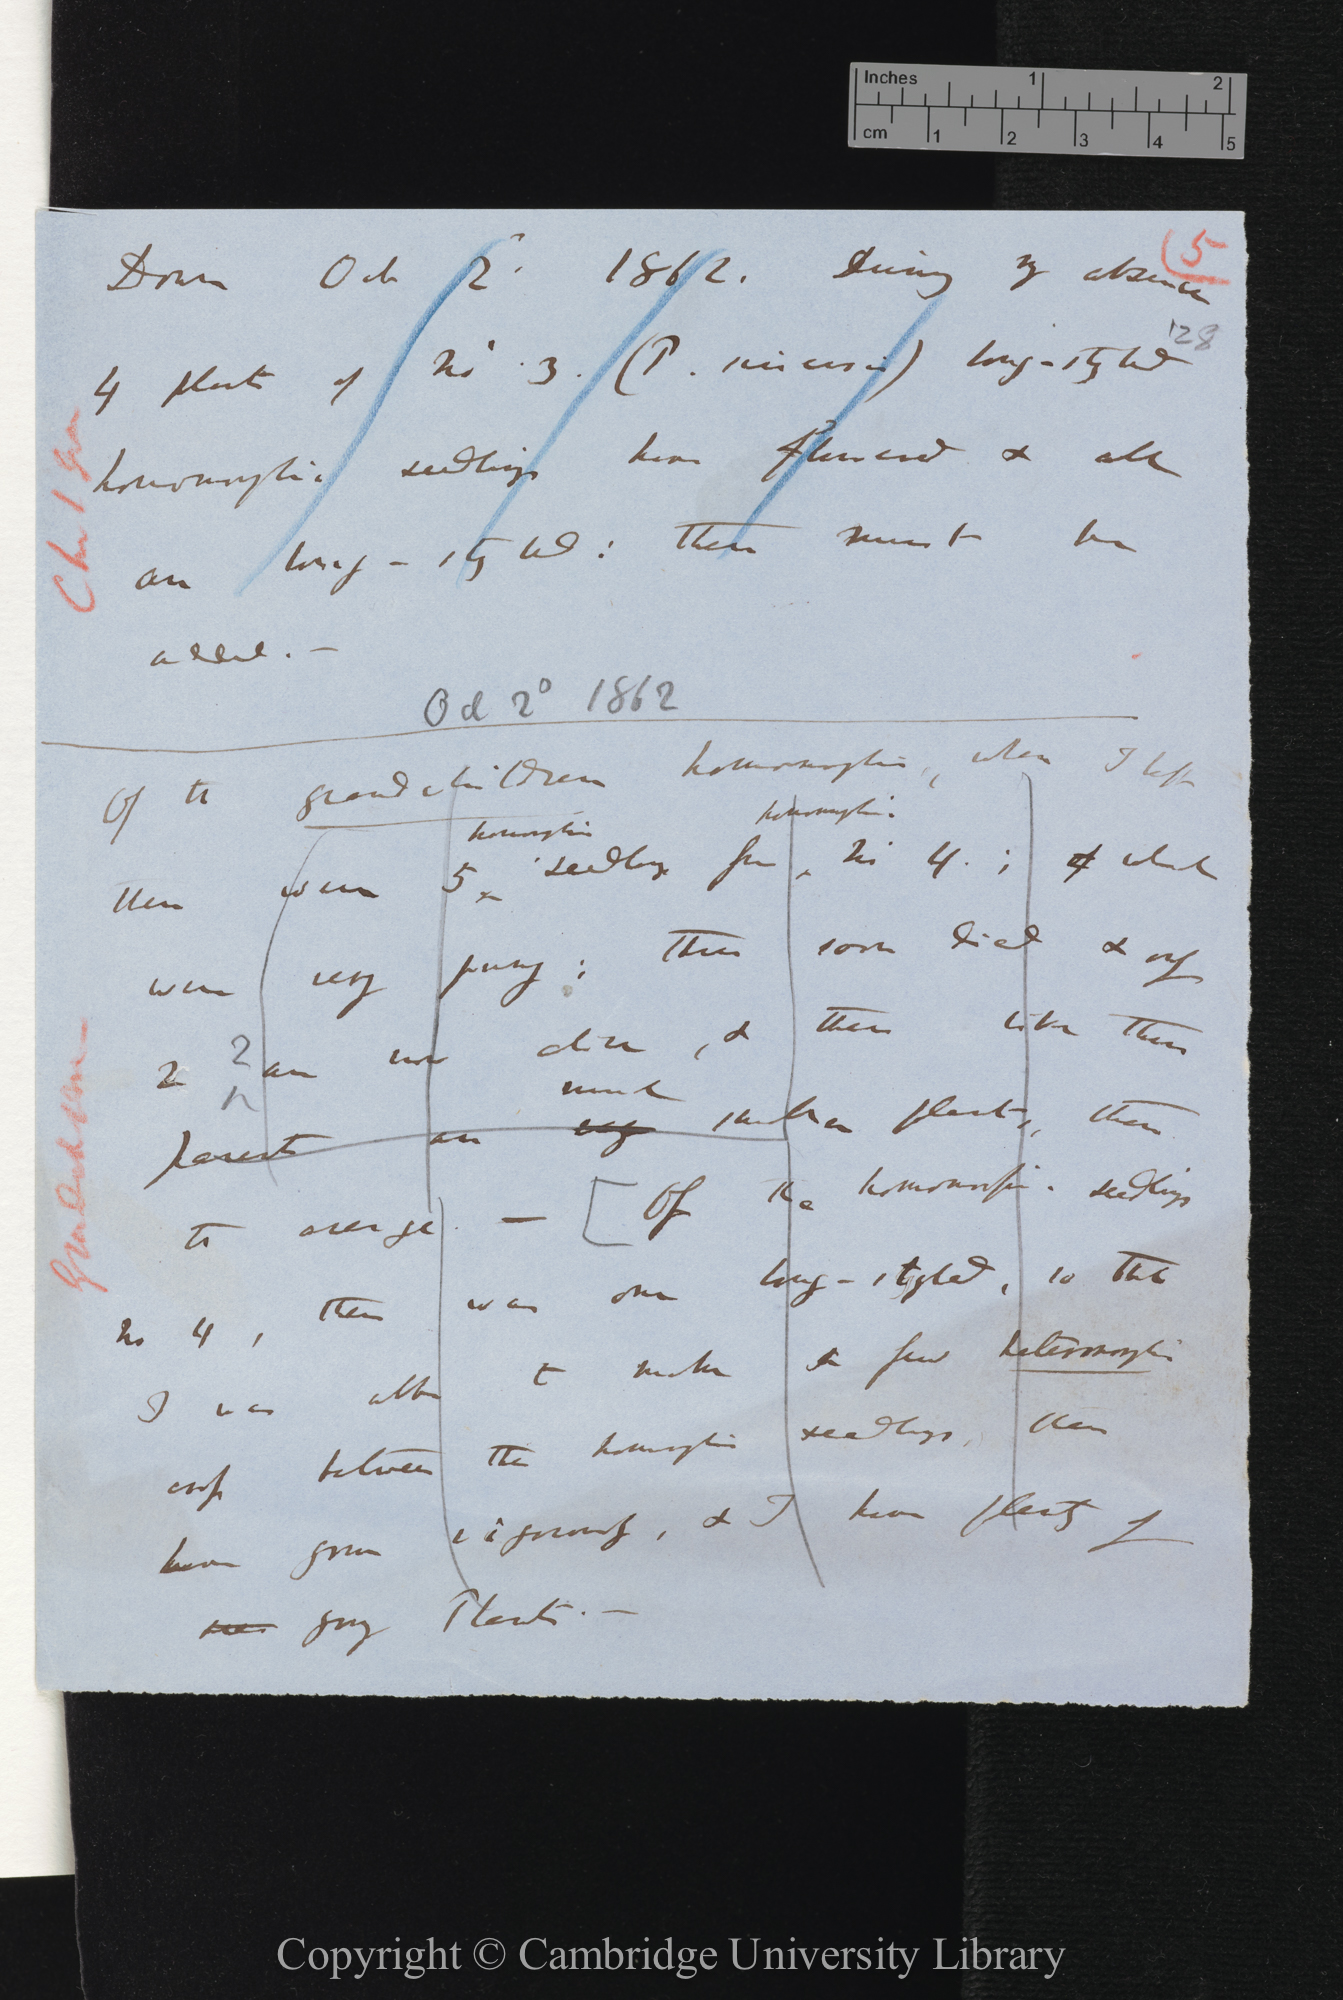 Inches 1 2
cm 1 2 3 4 5
(5
128
Down Oct 2d. 1862. During my absence
4 plants of No 3. (P. sinensis) long-styled
homomorphic seedlings have flowered & all
are long-styled: these must be
added. —
Children
Oct 2d 1862
Of the grandchildren homomorphic, when I left
homomorphic homomorphic
there were 5 seedlings from No 4.; of which
were very young; these soon died & only
2 2 are now alive, & these like their
much
parents are very smaller plants, than
the average. — [Of the homomorphic seedlings
Grandchildren
No 4, there was one long-styled, so that
I was able to make a few heteromorphic
cross between the homomorphic seedlings, these
have grown vigorously, & I have plenty of
young Plants. —
Copyright © Cambridge University Library